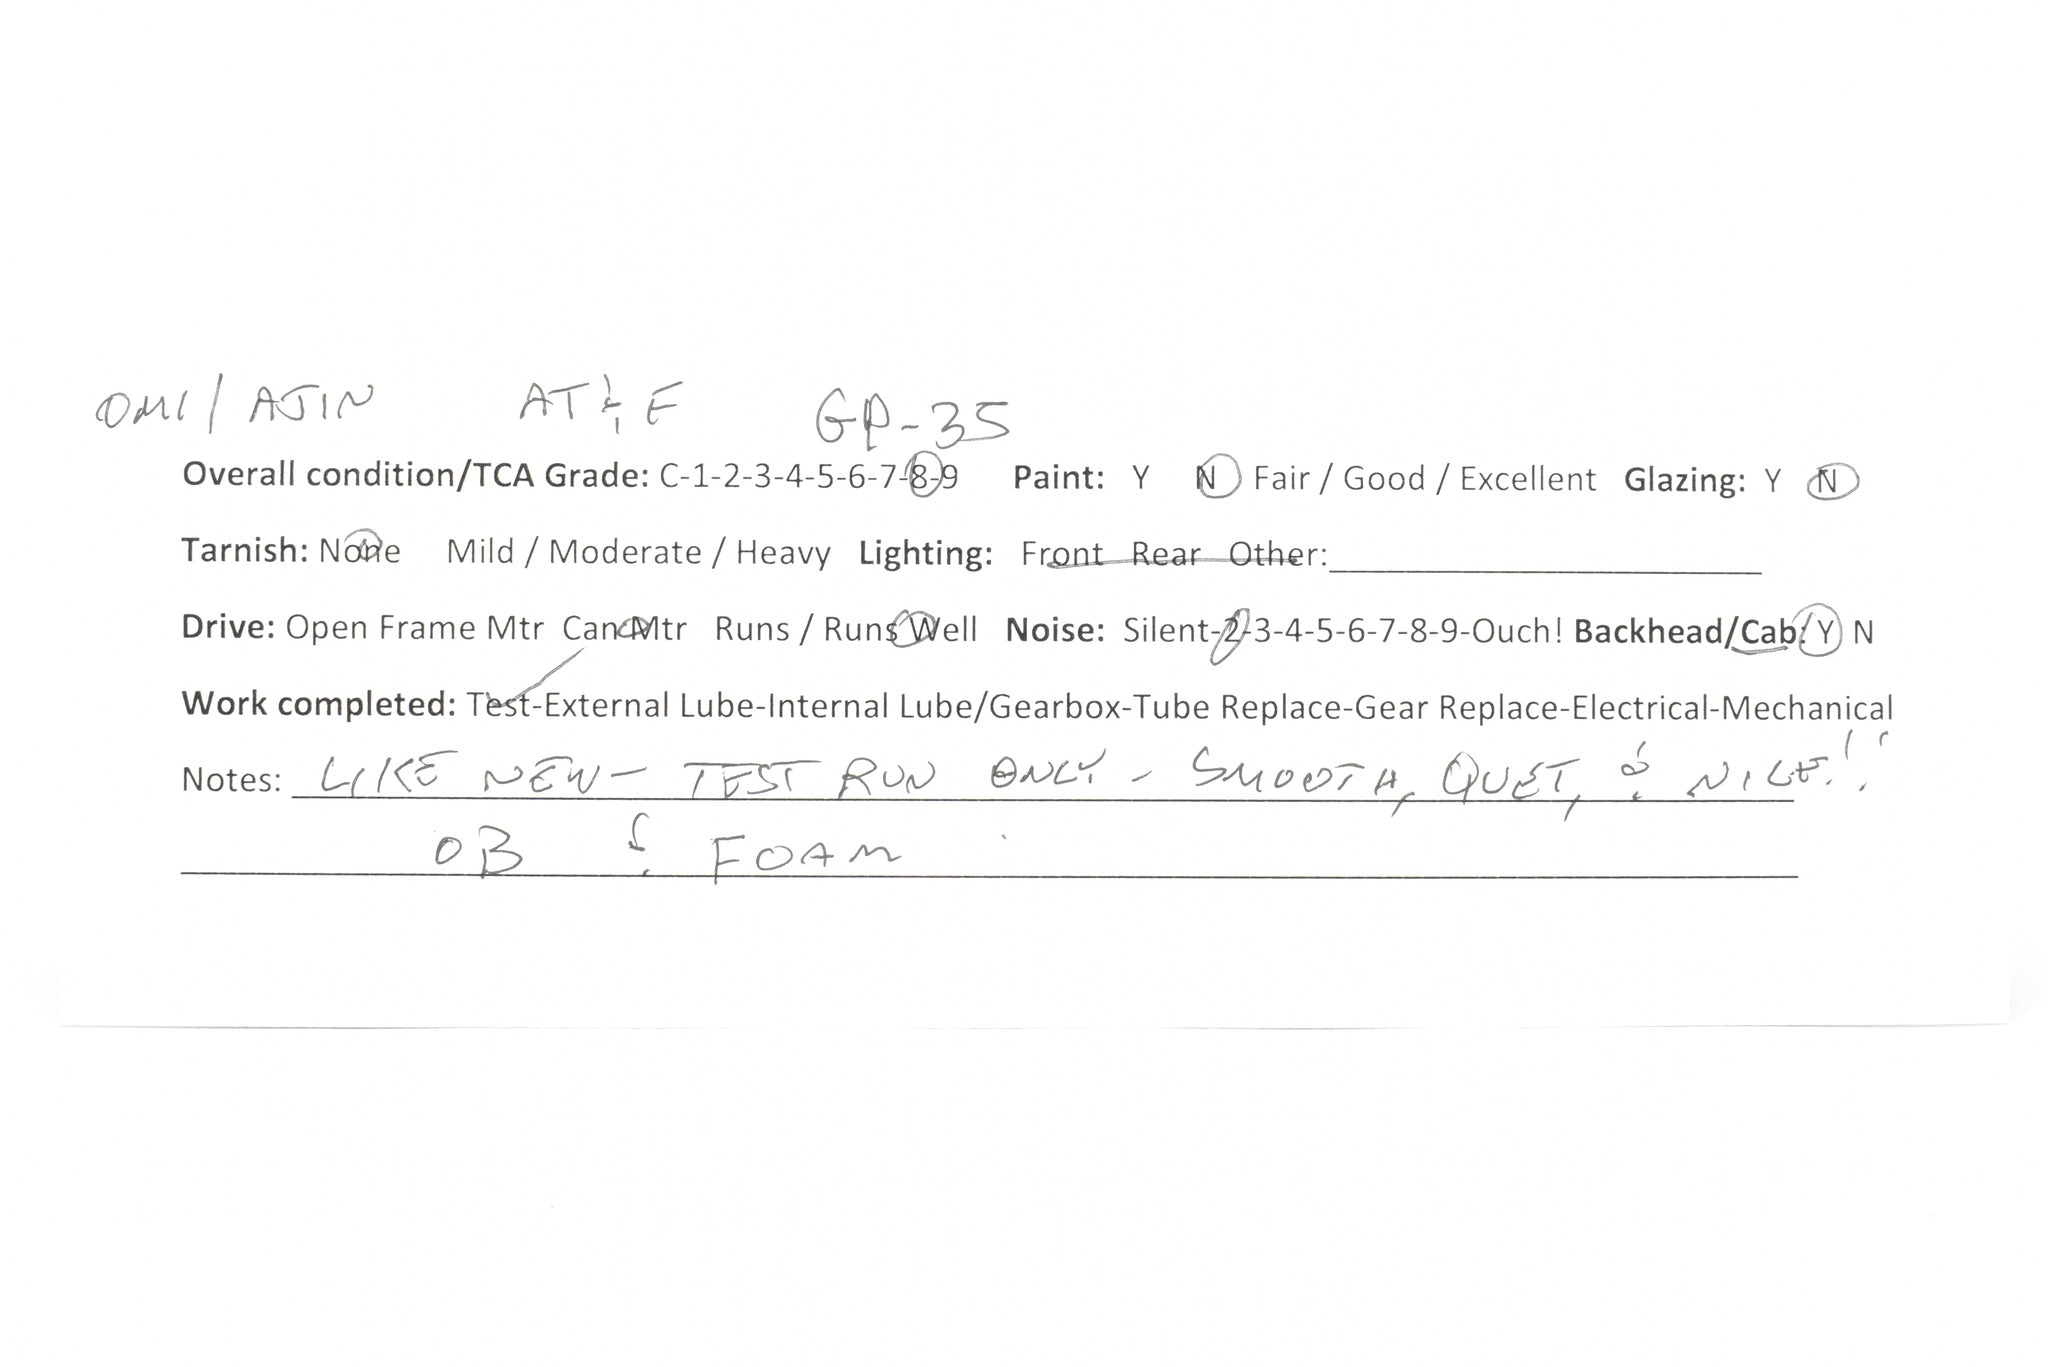 OMI / AJIN AT & F GP-35
Overall condition/TCA Grade: C-1-2-3-4-5-6-7-8-9 Paint: Y N Fair / Good / Excellent Glazing: Y N
Tarnish: None Mild / Moderate / Heavy Lighting: Front Rear Other:
Drive: Open Frame Mtr Can Mtr Runs / Runs Well Noise: Silent-2-3-4-5-6-7-8-9-Ouch! Backhead/Cab: Y N
Work completed: Test-External Lube-Internal Lube/Gearbox-Tube Replace-Gear Replace-Electrical-Mechanical
Notes: LIKE NEW - TEST RUN ONLY - SMOOTH, QUET, & NICE!!
OB & FOAM